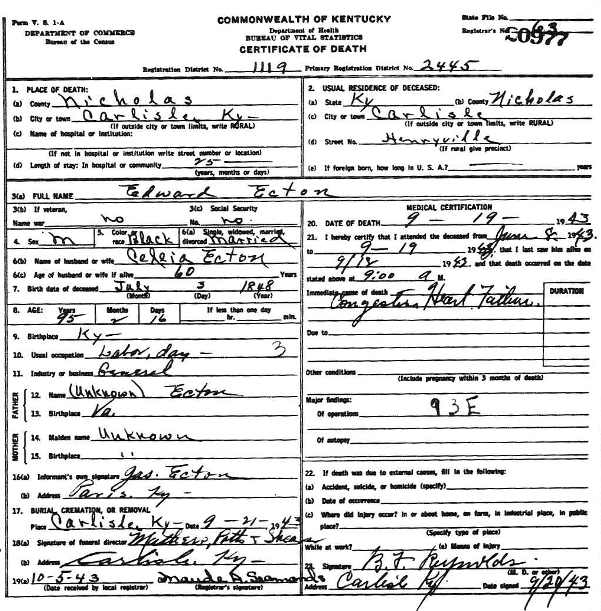 Form V. S. 1-A
DEPARTMENT OF COMMERCE
Bureau of the Census
COMMONWEALTH OF KENTUCKY
Department of Health
BUREAU OF VITAL STATISTICS
CERTIFICATE OF DEATH
State File No.
Registrar's No. 63
20977
Registration District No. 1119 Primary Registration District No. 2445
1. PLACE OF DEATH:
(a) County Nicholas
(b) City or town Carlisle, Ky-
(If outside city or town limits, write RURAL)
(c) Name of hospital or institution:
(If not in hospital or institution write street number or location)
(d) Length of stay: In hospital or community 25-
(years, months or days)
2. USUAL RESIDENCE OF DECEASED:
(a) State Ky (b) County Nicholas
(c) City or town Carlisle
(If outside city or town limits, write RURAL)
(d) Street No. Henryville
(If rural give precinct)
(e) If foreign born, how long in U. S. A.? years
3(a) FULL NAME Edward Ecton
3(b) If veteran, name war no
3(c) Social Security No. no.
4. Sex M 5. Color or race Black 6(a) Single, widowed, married, divorced Married
6(b) Name of husband or wife Celia Ecton
6(c) Age of husband or wife if alive 60 Years
7. Birth date of deceased July 3 1848
(Month) (Day) (Year)
8. AGE: Years 95 Months 2 Days 16 If less than one day hr. min.
9. Birthplace Ky-
10. Usual occupation Labor, day - 3
11. Industry or business General
FATHER
12. Name (Unknown) Ecton
13. Birthplace Va.
MOTHER
14. Maiden name Unknown
15. Birthplace "
16(a) Informant's own signature Gas. Ecton
(b) Address Paris, Ky-
17. BURIAL, CREMATION, OR REMOVAL
Place Carlisle, Ky- Date 9-21- 1943
18(a) Signature of funeral director Mathers, Potts &
(b) Address Carlisle, Ky-
19(a) 10-5-43 Maude
(Date received by local registrar) (Registrar's signature)
MEDICAL CERTIFICATION
20. DATE OF DEATH 9-19- 1943
21. I hereby certify that I attended the deceased from June 8 1943
9-19 1943, that I last saw him alive on
9/18 1943, and that death occurred on the date
stated above at 9:00 a M.
Immediate cause of death DURATION
Congestive Heart Failure
Due to
Other conditions
(Include pregnancy within 3 months of death)
Major findings:
Of operations 93E
Of autopsy
22. If death was due to external causes, fill in the following:
(a) Accident, suicide, or homicide (specify)
(b) Date of occurrence
(c) Where did injury occur? in or about home, on farm, in industrial place, in public
place?
(Specify type of place)
While at work? (e) Means of injury
23. Signature B. F. Reynolds
(M. D. or other)
Address Carlisle Ky. Date signed 9/20/43